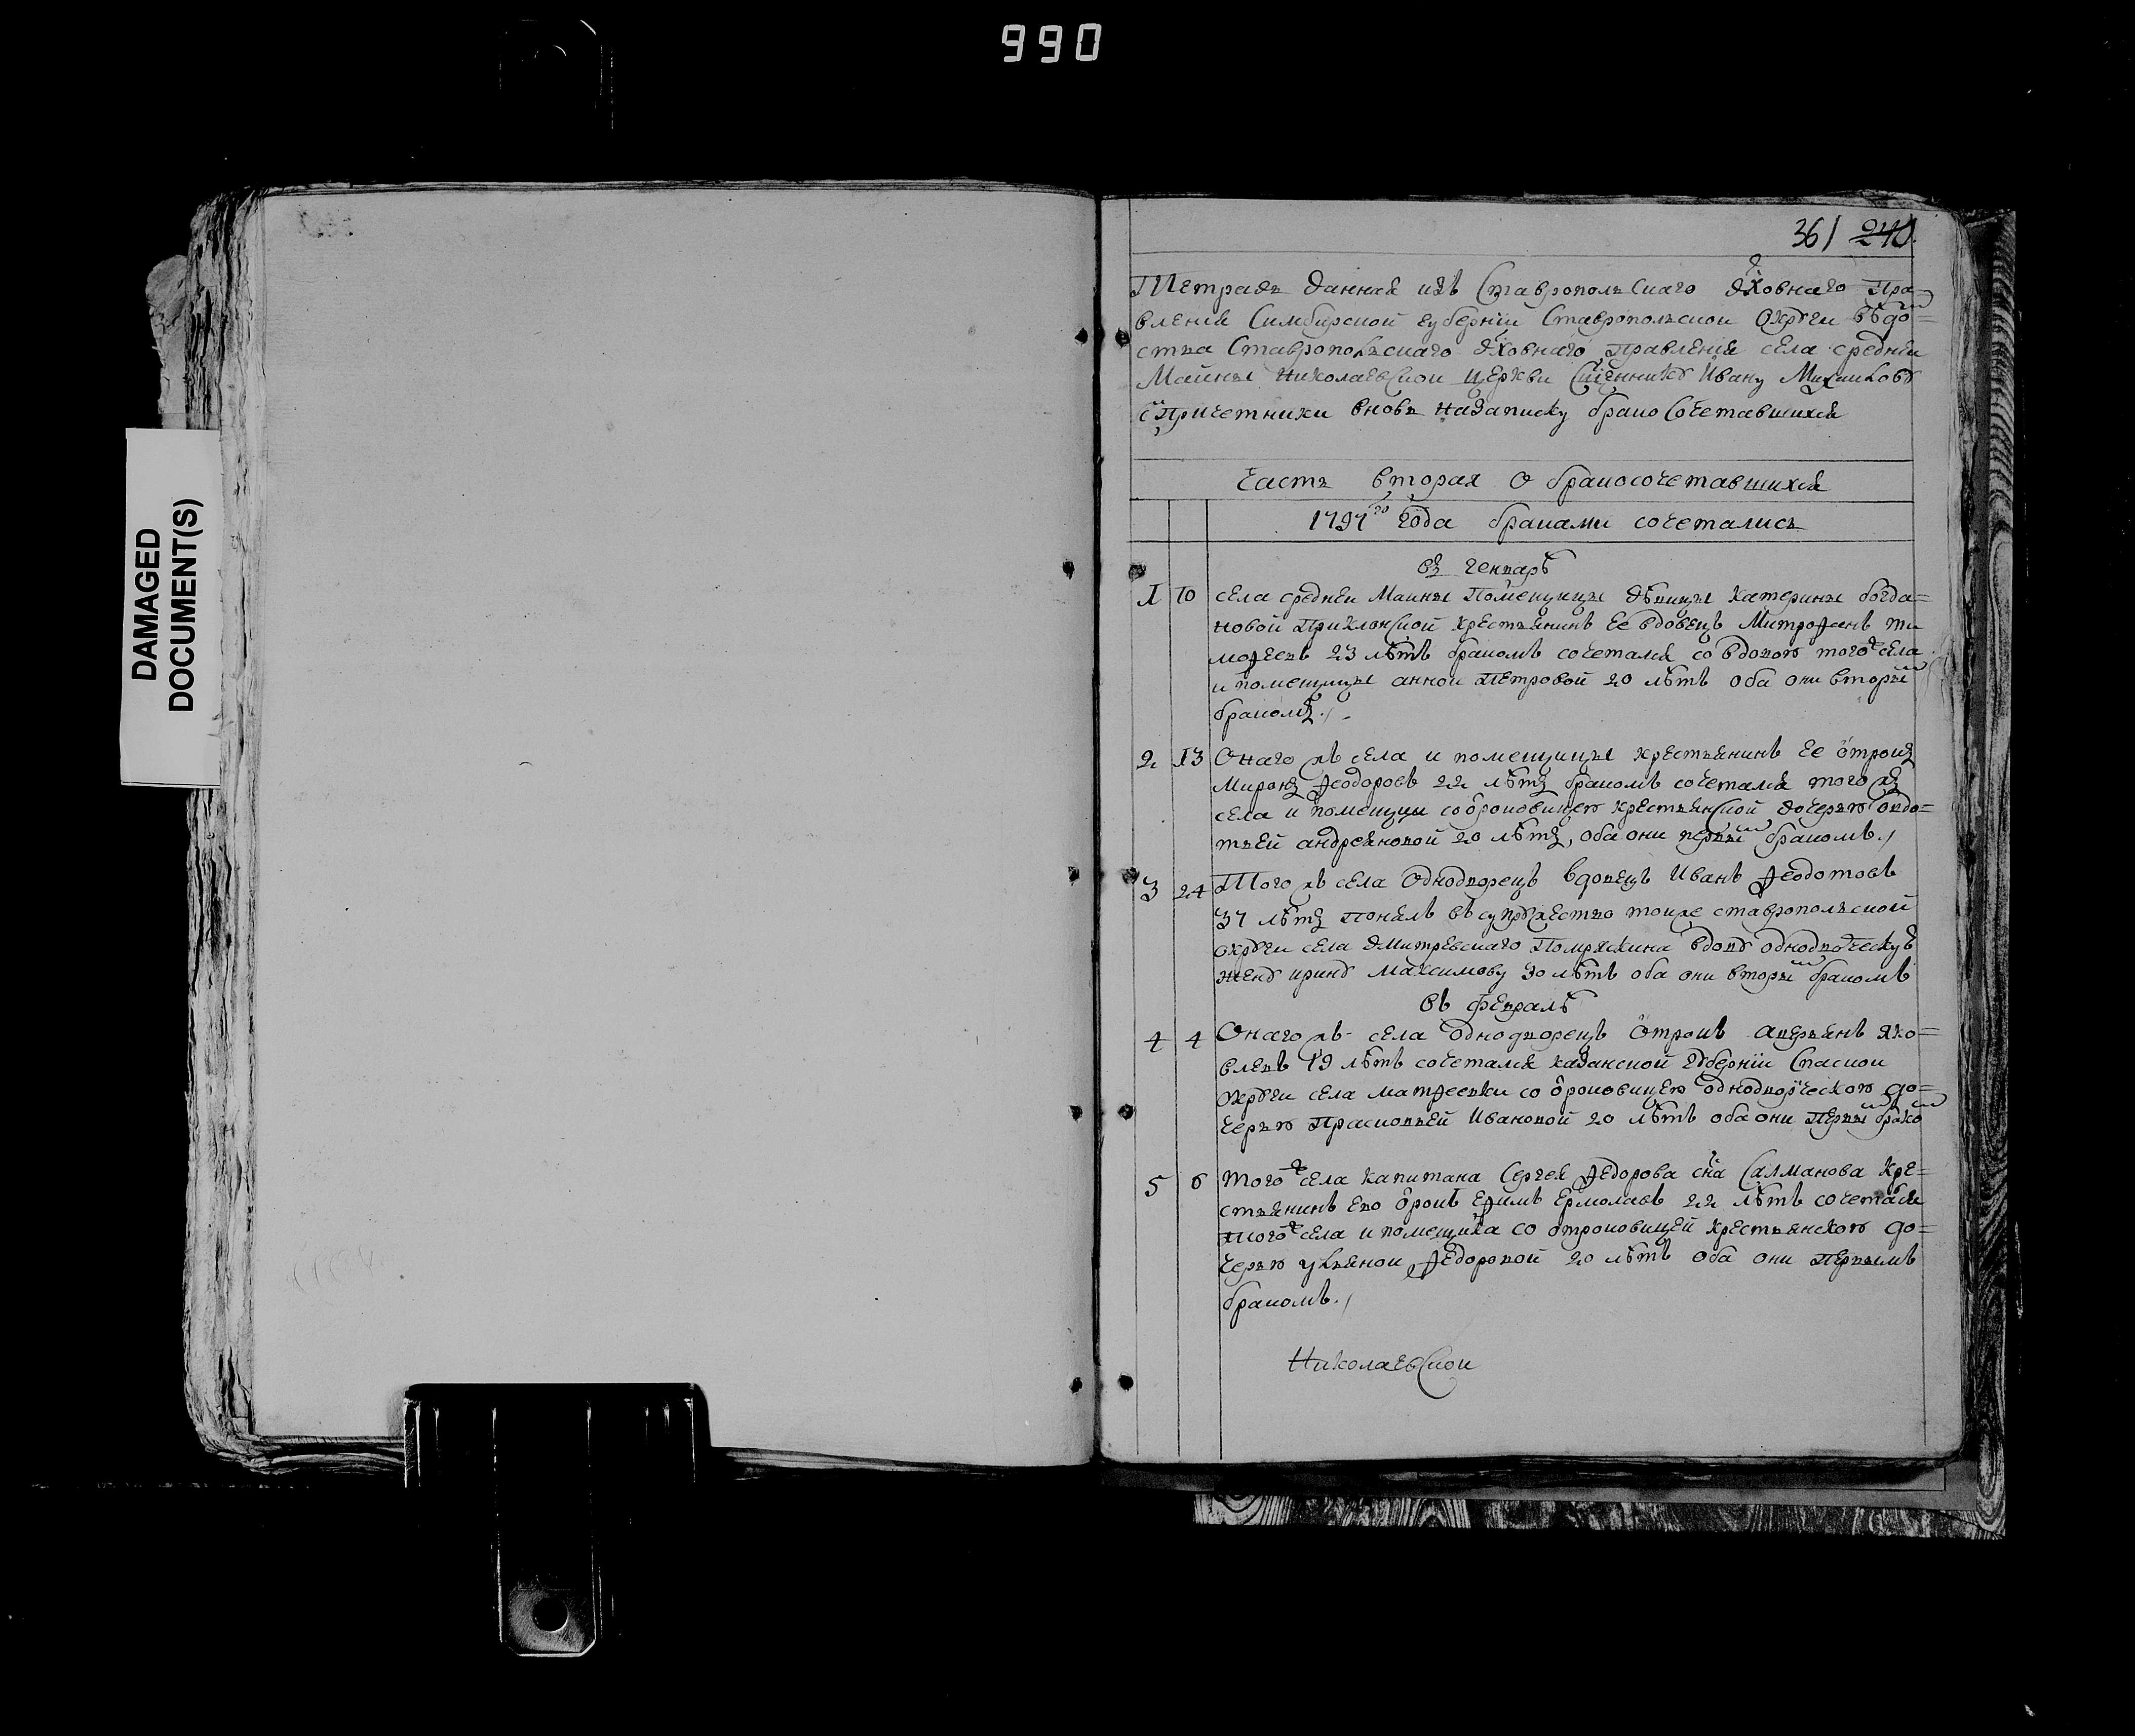 990
DAMAGED
DOCUMENT(S)
361 240.
Тетрадь данная изъ Ставропольскаго дховнаго Пра=
вленія Симбирской губерніи Ставропольскои Округи вѣдом=
ства Ставропольскаго дховнаго правленія села средней
Маины Николаевскои церкви Сщеннику Ивану Михаилову
с причетники вновь на записку бракосочетавшихся
Часть вторая о бракосочетавшихся
1797го года браками сочетались
въ генварѣ
1 10 села средней Маины Помещицы дѣвицы Катерины богда=
новой Приклонской крестьянинъ Ее вдовецъ Митрофанъ ти
мофеевъ 23 лѣтъ бракомъ сочетался со вдовою тогож села
и помещицы анной Петровой 20 лѣтъ оба они вторым
бракомъ./-
2 13 Онаго жъ села и помещицы крестьянинъ Ее отрокъ
Миронъ Феодоровъ 22 лѣтъ бракомъ сочетался того жъ
села и помещицы со отроковицею крестьянской дочерью овдо=
тьей андреяновой 20 лѣтъ, оба они первым бракомъ./
3 24 Того жъ села Однодворецъ вдовецъ Иванъ Феодотовъ
37 лѣтъ Понялъ въ супружество тоиже ставропольской
округи села дмитревскаго Помряскина вдову однодворческую
жену ирину Максимову 30 лѣтъ оба они вторым бракомъ
въ февралѣ
4 4 Онаго жъ села Однодворецъ отрокъ аверьянъ яко=
влевъ 19 лѣтъ сочетался казанской губерніи Спаскои
округи села матфеевки со отроковицею однодворческою до=
черью Прасковьей Ивановой 20 лѣтъ оба они Первым браком
5 6 тогож села капитана Сергея Федорова сна Салманова кре=
стьянинъ Ево отрокъ Ефимъ Ермолаевъ 22 лѣтъ сочетался
тогож села и помещика со отроковицей крестьянскою до=
черью ульяной Федоровой 20 лѣтъ оба они первымъ
бракомъ./
Николаевскои